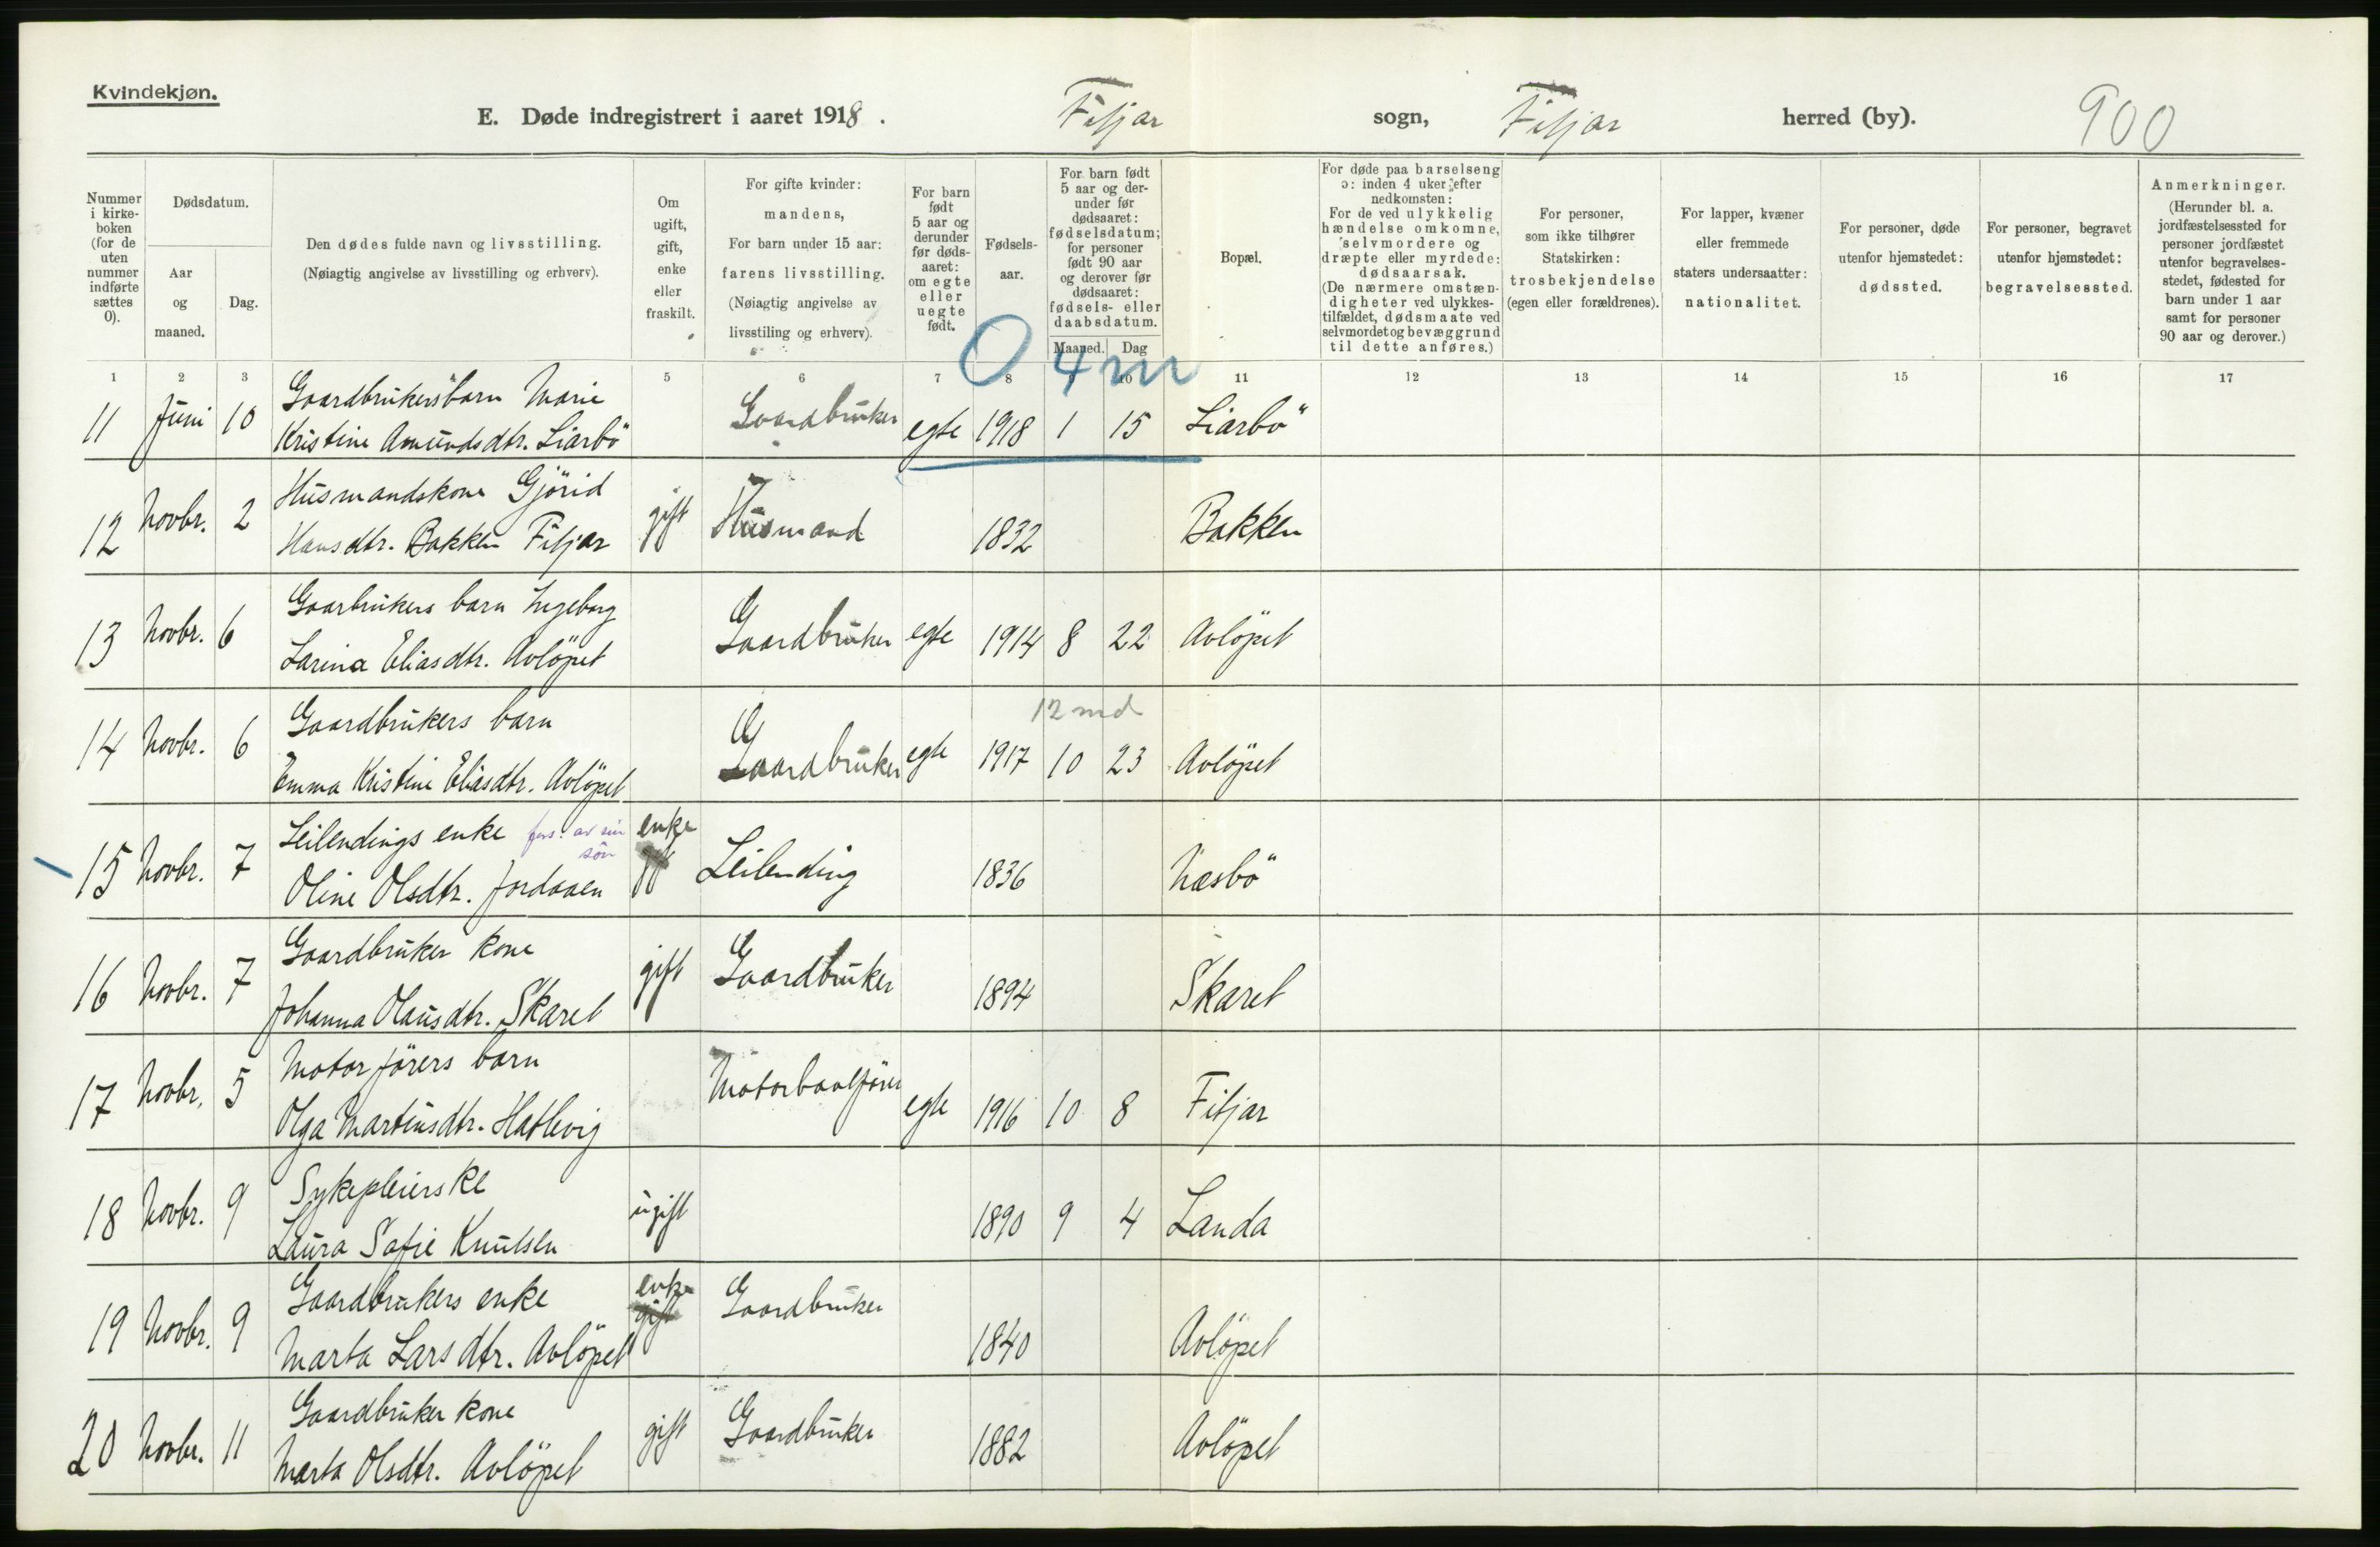 Kvindekjøn.
E. Døde indregistrert i aaret 1918. Fitjar sogn, Fitjar herred (by). 900
Nummer i kirke- boken (for de uten nummer indførte sættes 0).
Dødsdatum.
Aar og maaned.
Dag.
Den dødes fulde navn og livsstilling.
(Nøiagtig angivelse av livsstilling og erhverv).
Om ugift, gift, enke eller fraskilt.
For gifte kvinder:
mandens,
For barn under 15 aar:
farens livsstilling.
(Nøiagtig angivelse av
livsstiling og erhverv).
For barn født 5 aar og derunder før døds- aaret: om egte eller uegte født.
Fødsels- aar.
For barn født 5 aar og der- under før dødsaaret: fødselsdatum; for personer født 90 aar og derover før dødsaaret: fødsels- eller daabsdatum.
Maaned. Dag
Bopæl.
For døde paa barselseng ɔ: inden 4 uker efter nedkomsten:
For de ved ulykkelig hændelse omkomne, selvmordere og dræpte eller myrdede: dødsaarsak.
(De nærmere omstæn- digheter ved ulykkes- tilfældet, dødsmaate ved selvmordet og bevæggrund til dette anføres.)
For personer, som ikke tilhører Statskirken: trosbekjendelse (egen eller forældrenes).
For lapper, kvæner eller fremmede staters undersaatter: nationalitet.
For personer, døde utenfor hjemstedet: dødssted.
For personer, begravet utenfor hjemstedet: begravelsessted.
Anmerkninger.
(Herunder bl. a. jordfæstelsessted for personer jordfæstet utenfor begravelses- stedet, fødested for barn under 1 aar samt for personer 90 aar og derover.)
0 4 m
1 2 3 5 6 7 8 9 10 11 12 13 14 15 16 17
11 Juni 10 Gaardbrukersbarn Marie
Kristine Amundsdtr. Liarbö Gaardbruker egte 1918 1 15 Liarbö
12 Novbr. 2 Husmandskone Gjörid
Hansdtr. Bakken Fitjar gift Husmand 1832 Bakken
13 Novbr. 6 Gaarbrukers barn Ingeborg
Larina Eliasdtr. Avlöpet Gaardbruker egte 1914 8 22 Avlöpet
12 md
14 Novbr. 6 Gaardbrukers barn
Emma Kristine Eliasdtr. Avlöpet Gaardbruker egte 1917 10 23 Avlöpet
15 Novbr. 7 Leilendings enke fors. av sin sön enke
Oline Olsdtr. Jordaaen Leilending 1836 Næsbö
16 Novbr. 7 Gaardbruker kone
Johanna Olausdtr. Skaret gift Gaardbruker 1894 Skaret
17 Novbr. 5 Motorförers barn
Olga Martinsdtr. Hatlevig Motorbaatförer egte 1916 10 8 Fitjar
18 Novbr. 9 Sykepleierske
Laura Sofie Knutsen ugift 1890 9 4 Landa
19 Novbr. 9 Gaardbrukers enke enke
Marta Larsdtr. Avlöpet gift Gaardbruker 1840 Avlöpet
20 Novbr. 11 Gaardbruker kone
Marta Olsdtr. Avlöpet gift Gaardbruker 1882 Avlöpet